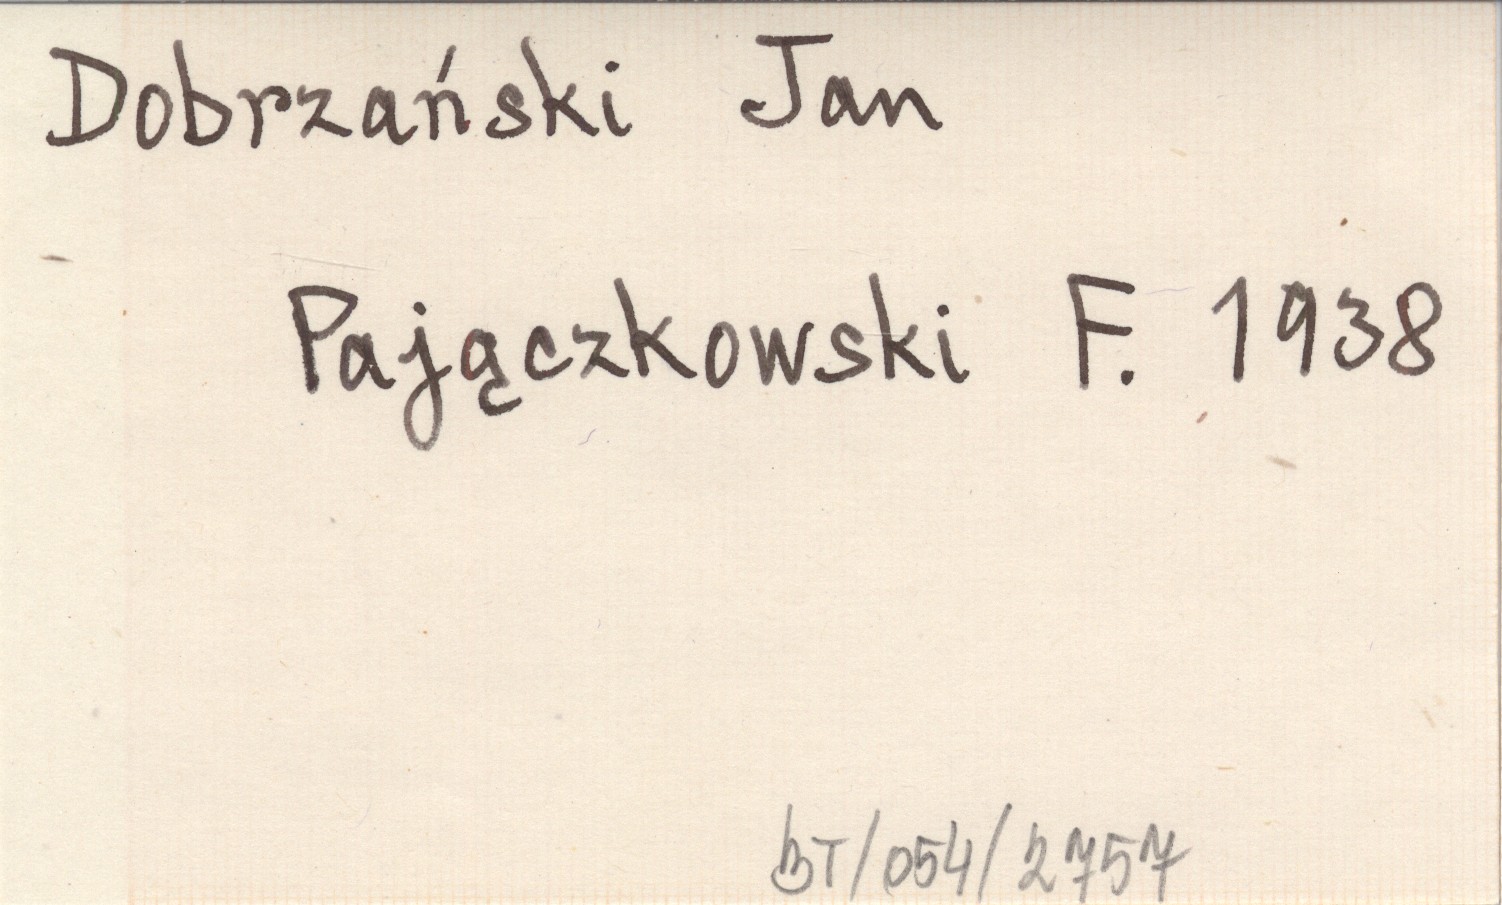 Dobrzański Jan
Pajączkowski F. 1938
BT/054/2757